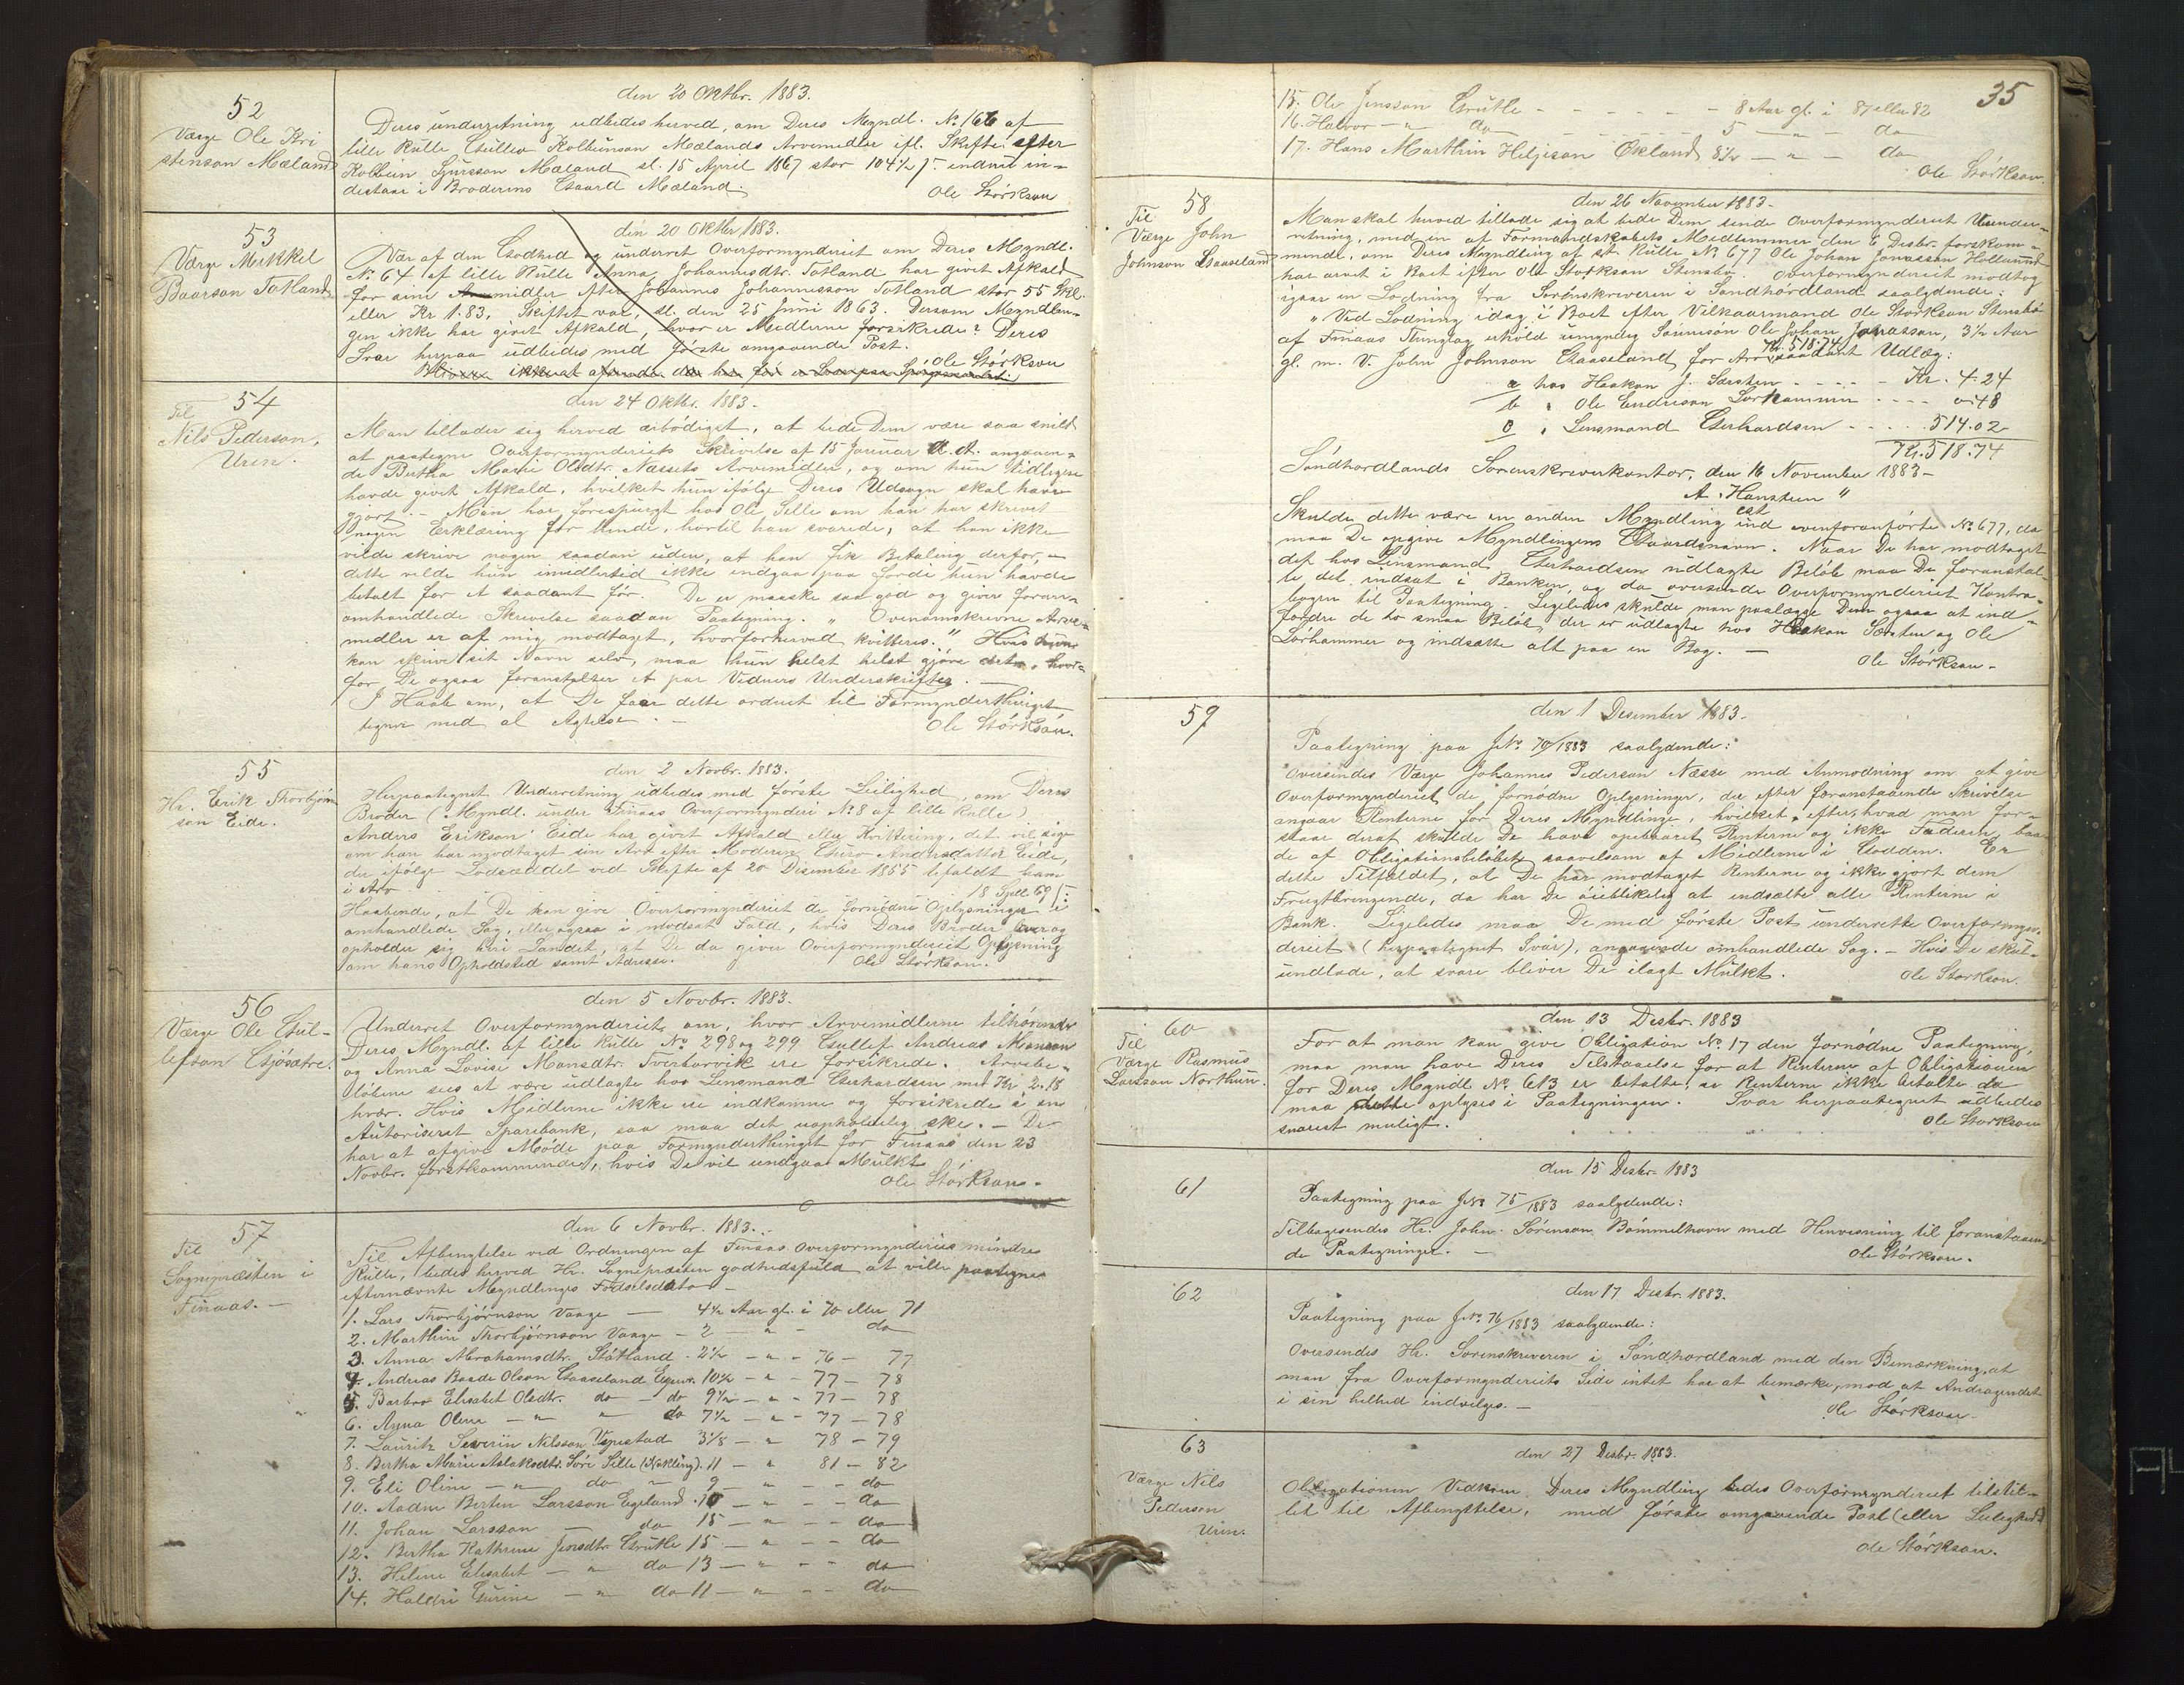 52
Værge Ole Kri
stenson Mæland
den 20 Oktbr. 1883.
Deres underretning udbedes herved, om Deres Myndl. No. 166 af
lille Rulle Gullev Kolbeinson Mælands Arvemidler ifl. Skifte efter
Kolbein Sjursson Mæland sl. 15 April 1867 stor 104½ ſ. endnu in-
destaar i Broderens Gaard Mæland.
Ole Størkson
53
Værge Mikkel
Baarson Totland
den 20 Oktbr 1883.
Vær af den Godhed og underret Overformynderiet om Deres Myndl.
No. 64 af lille Rulle Anna Johannesdtr. Totland har givet Afkald
for sine Arvemidler efter Johannes Johannesson Totland stor 55 Skl.
eller Kr 1.83. Skiftet var sl. den 25 Juni 1863. Dersom Myndlin-
gen ikke har givet Afkald, hvor er Midlerne forsikrede? Deres
Svar herpaa udbedes med første omgaaende Post.
Ole Størkson
54
Til
Nils Pederson,
Uren.
den 24 Oktbr. 1883.
Man tillader sig herved ærbødigst, at bede Dem være saa snild
at paategne Overformynderiets Skrivelse af 15 Januar d. A. angaaen-
de Bertha Marie Olsdtr. Næssets Arvemidler, og om hun tidligere
havde givet Afkald, hvilket hun ifølge Deres Udsagn skal have
gjort. - Man har forespurgt hos Ole Sille om han har skrevet
nogen Erklæring for hende, hortil han svarede, at han ikke
vilde skrive nogen saadan uden, at han fik Betaling derfor, -
dette vilde hun imedlertid ikke indgaa paa fordi hun havde
betalt for et saadant før. De er maaske saa god og giver foran-
omhandlede Skrivelse saadan Paategning. " Ovenomskrevne Arve-
midler er af mig modtaget, hvorforherved kvitteres." Hvis hun
kan skrive sit Navn selv, maa hun helst helst gjøre det, hvor-
for De ogsaa foranstalter et par Vidners Underskrifter. -
I Haab om, at De faar dette ordnet til Formynderthinget
tegner med al Agtelse. -
Ole Størkson.
55
Hr. Erik Thorbjørn
son Eide.
den 2 Novbr. 1883.
Herpaategnet Underretning udbedes med første Leilighed, om Deres
Broder (Myndl. under Finaas Overformynderi No. 8 af lille Rulle)
Anders Erikson Eide har givet Afkald eller Kvitering, det vil sige
om han har modtaget sin Arv efter Moderen Guro Andersdatter Eide,
der ifølge Lodseddel ved Skifte af 20 Disember 1855 tilfaldt ham
i Arv 18 Spd. 69 ſ.
Haabende, at De kan give Overformynderiet de fornødne Oplysninger i
omhandlede Sag, eller ogsaa i modsat Fald, hvis Deres Broder lever og
opholder sig her i Landet, at De da giver Overformynderiet Oplysning
om hans Opholdsted samt Adresse.
Ole Størkson.
56
Værge Ole Gul-
lefson Gjøsætre.
den 5 Novbr. 1883.
Underret Overformynderiet, om, hvor Arvemidlerne tilhørende
Deres Myndl. af lille Rulle No 298 og 299 Gullef Andreas Monson
og Anna Lovise Monsdtr. Tverborvik ere forsikrede. Arvebe-
løbene sees at være udlagte hos Lensmand Gerhardsen med Kr 2.18
hver. Hvis Midlerne ikke ere indkomne og forsikrede i en
Autoriseret Sparebank, saa maa det uopholdelig ske. - De
har at afgive Møde paa Formynderthinget for Finaas den 23
Novbr. førstkommende, hvis De vil undgaa Mulkt.
Ole Størkson.
57
Til
Sognepræsten i
Finaas. -
den 6 Novbr. 1883.
Til Afbenyttelse ved Ordningen af Finaas Overformynderies mindre
Rulle, bedes herved Hr. Sognepræsten godhedsfuld at ville paategne
efternævnte Myndlinges Fødselsdato -
1. Lars Thorbjørnson Vaage - 4½ Aar gl. i 70 eller 71
2. Marthin Thorbjørnson Vaage - 2 - " - do
3. Anna Abrahamsdtr. Stokland - 2½ - " - 76 - 77
4. Andreas Baade Olson Gaaseland Espev. 10½ - " - 77 - 78
5. Barbro Elisabet Olsdtr. do - do 9½ - " - 77 - 78
6. Anna Oline - " - " do 7½ - " - 77 - 78
7. Lauritz Severin Nilsson Vespestad 3⅛ - " 78 - 79
8. Bertha Marie Aslaksdtr. Søre Sille (Kokling). 11 - " 81 - 82
9. Eli Oline - " - do - 9 - " - do
10. Aadne Bertin Larsson Egeland. 10 - " - do
11. Johan Larsson - do 15 - " - do
12. Bertha Kathrine Jensdtr. Grutle 15 - " - do
13. Helene Elisabet - " do 13 - " - do
14. Haldri Gurine - " do 11 - " - do
35
15. Ole Jensson Grutle - - - - 8 Aar gl. i 81 eller 82
16. Halvor - " do - - - 5 - " - do
17. Hans Marthin Heljeson Økland 8½ - " - do
Ole Størkson.
58
Til
Værge John
Johnson Gaaseland
den 26 November 1883.
Man skal herved tillade sig at bede Dem sende Overformynderiet Under-
retning, med en af Formandskabets Medlemmer den 6 Desbr. førstkom-
mende, om Deres Myndling af st. Rulle No. 677 Ole Johan Jonasson Hollund
har arvet i Boet efter Ole Størkson Stensbø. Overformynderiet modtog
igaar en Lodning fra Sorenskriveren i Søndhordland saalydende:
" Ved Lodning idag i Boet efter Vilkaarmand Ole Størkson Stensbø
af Finaas Thinglag erhold umyndig Sønnesøn Ole Johan Jonasson, 3½ Aar
gl. m. V. John Johnson Gaaseland for Arv Kr. 518.74 saadant Udlæg:
a hos Haakon J. Sæsten - - - - Kr. 4.24
b " Ole Endreson Sørhammer - - - 0.48
c " Lensmand Gerhardsen - - - 514.02
Kr. 518.74
Søndhordlands Sorenskriverkontor, den 16 November 1883 -
A. Hansteen "
Skulde dette være en anden Myndling end ovenforanførte No. 677, da
maa De opgive Myndlingens Gaardsnavn. Naar De har modtaget
det hos Lensmand Gerhardsen udlagte Beløb maa De foranstal-
te det indsat i Banken, og da oversende Overformynderiet Kontra-
bogen til Paategning. Ligeledes skulde man paalægge Dem ogsaa at ind-
fordre de to smaa Beløb, der er udlagte hos Haakon Sæsten og Ole
Sørhammer og indsætte alt paa en Bog. -
Ole Størkson -
59
den 1 Desember 1883.
Paategning paa JNo. 70/1883 saalydende:
Oversendes Værge Johannes Pederson Næsse med Anmodning om at give
Overformynderiet de fornødne Oplysninger, der efter foranstaaende Skrivelse
angaar Renterne for Deres Myndlinge, hvilket, efter, hvad man for-
staar deraf skulde De have opebaaret Renterne og ikke Faderen, baa-
de af Obligationsbeløbet, saavelsom af Midlerne i Lodden. Er
dette Tilfældet, at De har modtaget Renterne og ikke gjort dem
Frugtbringende, da har De øieblikkelig at indsætte alle Renterne i
Bank. Ligeledes maa De med første Post underrette Overformyn-
deriet (herpaategnet Svar), angaaende omhandlede Sag. - Hvis De skul-
undlade, at svare bliver De ilagt Mulkt.
Ole Størkson.
60
Til
Værge Rasmus
Larsson Northun.
den 13 Desbr. 1883
For at man kan give Obligation No. 17 den fornødne Paategning,
maa man have Deres Tilstaaelse for at Renterne af Obligationen
for Deres Myndl No. 613 er betalte, er Renterne ikke betalte da
maa dette oplyses i Paategningen. Svar herpaategnet udbedes
snarest muligt.
Ole Størkson
61
den 15 Desbr. 1883
Paategning paa JNo 75/1883 saalydende:
Tilbagesendes Hr. John Sørenson Bømmelhavn med Henvisning til foranstaaen-
de Paategninger. -
Ole Størkson.
62
den 17 Desbr. 1883.
Paategning paa JNo. 76/1883 saalydende:
Oversendes Hr. Sorenskriveren i Søndhordland med den Bemærkning, at
man fra Overformynderiets Side intet har at bemærke, mod at Andragendet
i sin helhed indvilges. -
Ole Størkson.
63
Værge Nils
Pederson
Uren.
den 27 Desbr. 1883.
Obligationen Vedkom. Deres Myndling bedes Overformynderiet tilstil-
let til Afbenyttelse, med første omgaaende Post (eller Leilighed)
Ole Størkson.